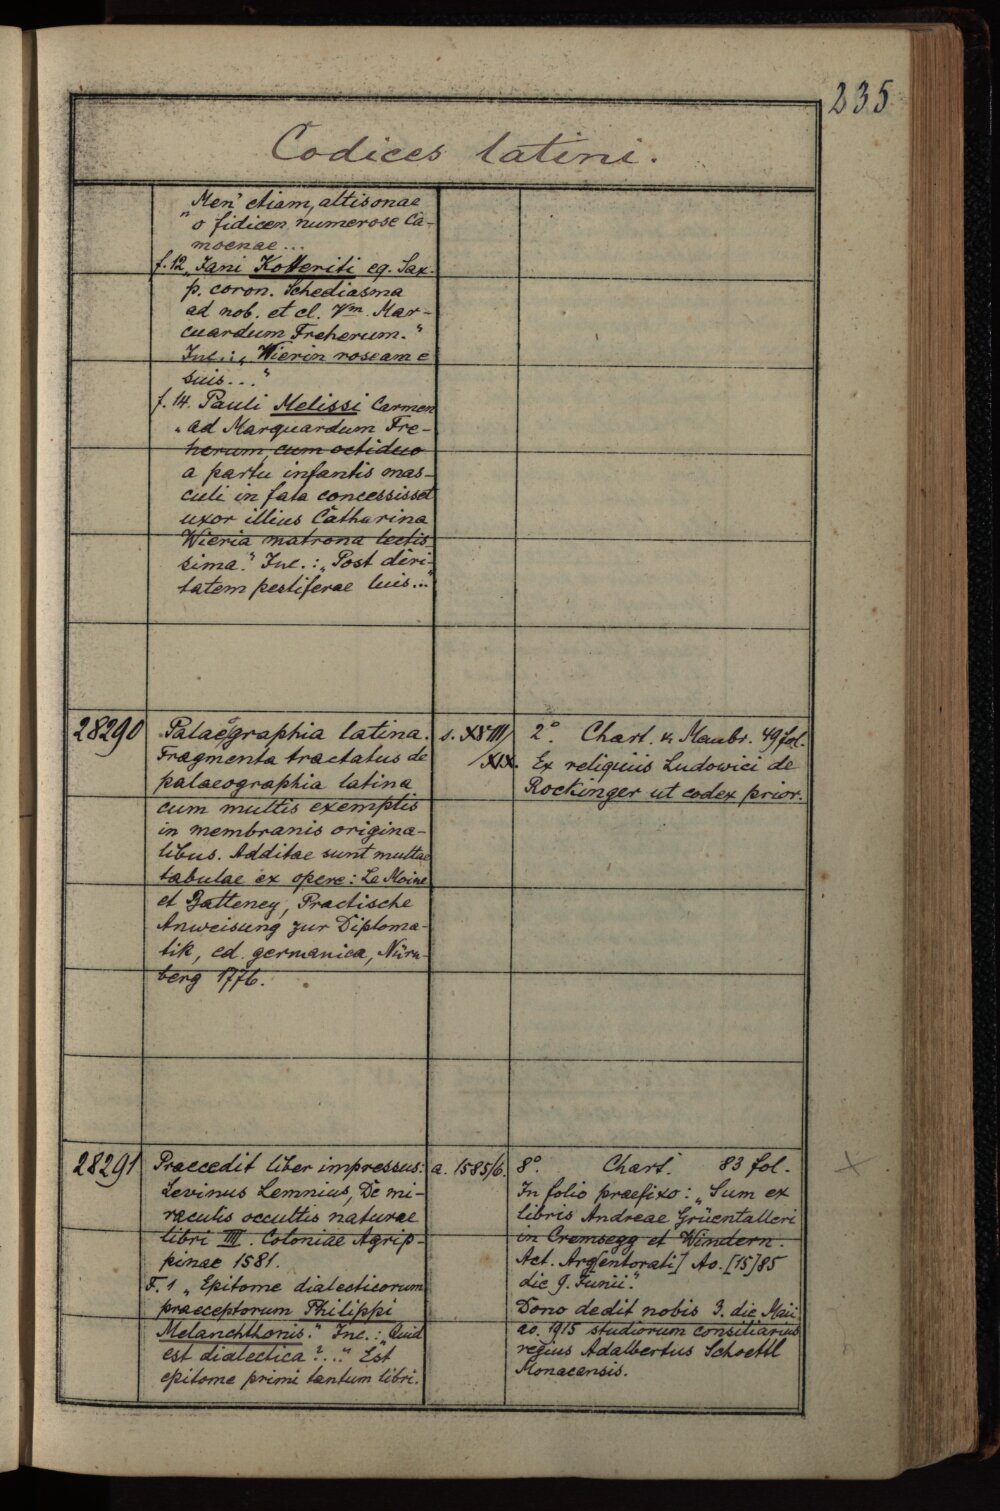 235
Codices latini.
Men' etiam, altisonae
" o fidicen numerose Ca-
moenae...
f. 12 „Jani Kotteriti eq. Sax.
p. coron. Schediasma
ad nob. et cl. Vm. Mar-
cuardum Freherum."
Inc.: „Wierin roseam e
suis..."
f. 14. Pauli Melissi Carmen
„ad Marquardum Fre-
herum, cum octiduo
a partu infantis mas-
culi in fata concessisset
uxor illius Catharina
Wieria matrona lectis
sima." Inc.: „Post diri-
tatem pestiferae luis..."
28290
Palaeographia latina.
Fragmenta tractatus de
palaeographia latina
cum multis exemptis
in membranis origina-
libus. Additae sunt multae
tabulae ex opere: Le Moine
et Batteney, Practische
Anweisung zur Diploma-
tik, ed. germanica, Nürn-
berg 1776.
s. XVIII/
XIX.
2°. Chart. u. Membr. 49 fol.
Ex reliquiis Ludowici de
Rockinger ut codex prior.
28291
Praecedit liber impressus:
Levinus Lemnius, De mi-
raculis occultis naturae
libri IIII. Coloniae Agrip-
pinae 1581.
F. 1 „Epitome dialecticorum
praeceptorum Philippi
Melanchthonis." Inc.: „Quid
est dialectica?..." Est
epitome primi tantum libri.
a. 1585/6.
8°. Chart. 83 fol.
In folio praefixo: „Sum ex
libris Andreae Grüentalleri
in Cremsegg et Windern.
Act. Arg[entorati] Ao. [15]85
die 9. Junii."
Dono dedit nobis 3. die Maii
ao. 1915 studiorum consiliarius
regius Adalbertus Schoettl
Monacensis.